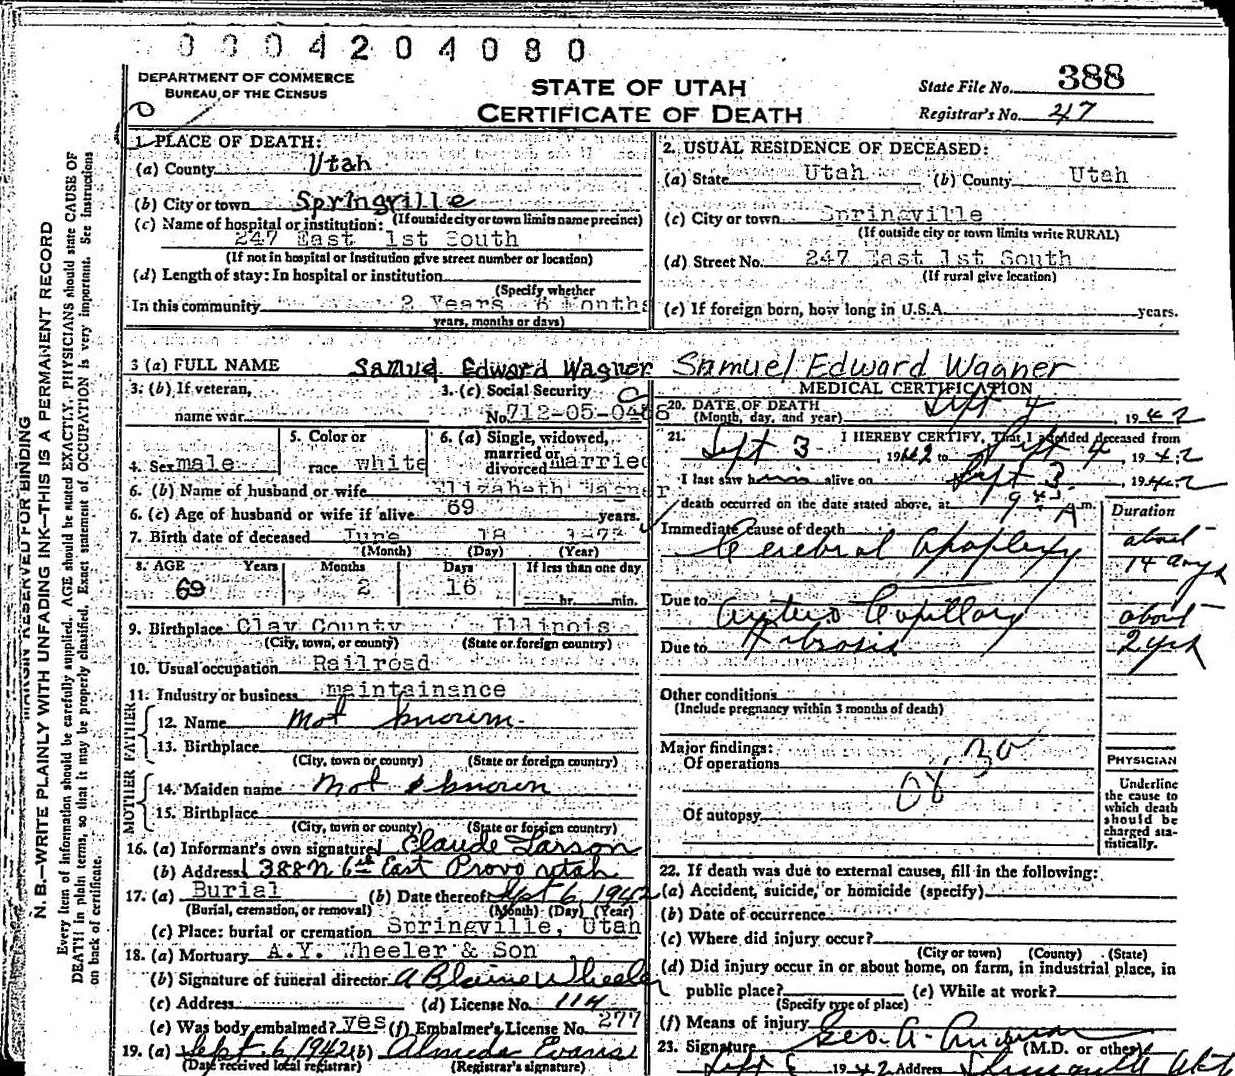 0004204080
DEPARTMENT OF COMMERCE
BUREAU OF THE CENSUS
STATE OF UTAH
CERTIFICATE OF DEATH
State File No. 388
Registrar's No. 47
1. PLACE OF DEATH:
(a) County Utah
(b) City or town Springville
(If outside city or town limits name precinct)
(c) Name of hospital or institution:
247 East 1st South
(If not in hospital or institution give street number or location)
(d) Length of stay: In hospital or institution
(Specify whether
In this community 2 Years 6 Months
years, months or days)
2. USUAL RESIDENCE OF DECEASED:
(a) State Utah (b) County Utah
(c) City or town Springville
(If outside city or town limits write RURAL)
(d) Street No. 247 East 1st South
(If rural give location)
(e) If foreign born, how long in U.S.A. years.
3 (a) FULL NAME Samuel Edward Wagner Samuel Edward Wagner
3. (b) If veteran,
name war
3. (c) Social Security
No. 712-05-0486
4. Sex male
5. Color or
race white
6. (a) Single, widowed,
married or
divorced married
6. (b) Name of husband or wife Elizabeth Wagner
6. (c) Age of husband or wife if alive 69 years.
7. Birth date of deceased June 18 1873
(Month) (Day) (Year)
8. AGE Years Months Days If less than one day
69 2 16 hr. min.
9. Birthplace Clay County Illinois
(City, town, or county) (State or foreign country)
10. Usual occupation Railroad
11. Industry or business maintainance
FATHER
12. Name Not known
13. Birthplace
(City, town or county) (State or foreign country)
MOTHER
14. Maiden name Not known
15. Birthplace
(City, town or county) (State or foreign country)
16. (a) Informant's own signature Claude Larson
(b) Address 1388 N 6th East Provo Utah
17. (a) Burial (b) Date thereof Sept 6, 1942
(Burial, cremation, or removal) (Month) (Day) (Year)
(c) Place: burial or cremation Springville, Utah
18. (a) Mortuary A.Y. Wheeler & Son
(b) Signature of funeral director A Blaine Wheeler
(c) Address (d) License No. 114
(e) Was body embalmed? yes (f) Embalmer's License No. 277
19. (a) Sept. 6, 1942 (b) Almeda Evans
(Date received local registrar) (Registrar's signature)
MEDICAL CERTIFICATION
20. DATE OF DEATH
(Month, day, and year) Sept 4, 1942
21. I HEREBY CERTIFY, That I attended deceased from
Sept 3, 1942 to Sept 4 1942
I last saw him alive on Sept 3, 1942
death occurred on the date stated above, at 9 45 A m.
Duration
Immediate cause of death
Cerebral Apoplexy about
14 days
Due to Arterio Capillary about
Due to Fibrosis 2 yrs
Other conditions
(Include pregnancy within 3 months of death)
Major findings:
Of operations
30
08
Of autopsy
PHYSICIAN
Underline
the cause to
which death
should be
charged sta-
tistically.
22. If death was due to external causes, fill in the following:
(a) Accident, suicide, or homicide (specify)
(b) Date of occurrence
(c) Where did injury occur?
(City or town) (County) (State)
(d) Did injury occur in or about home, on farm, in industrial place, in
public place? (e) While at work?
(Specify type of place)
(f) Means of injury
23. Signature Geo. A. (M.D. or other)
Sept 1942 Address
MARGIN RESERVED FOR BINDING
N. B.—WRITE PLAINLY WITH UNFADING INK—THIS IS A PERMANENT RECORD
Every item of information should be carefully supplied. AGE should be stated EXACTLY. PHYSICIANS should state CAUSE OF
DEATH in plain terms, so that it may be properly classified. Exact statement of OCCUPATION is very important. See instructions
on back of certificate.